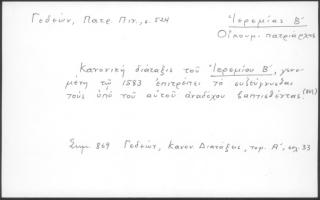 Γεδεών, Πατρ. Πιν., σ. 524
Ἱερεμίας Β΄
Οἰκουμ. πατριάρχης
Κανονικὴ διάταξις τοῦ Ἱερεμίου Β΄, γενο-
μένη τῷ 1583 ἐπιτρέπει τὸ συζεύγνυσθαι
τοὺς ὑπὸ τοῦ αὐτοῦ ἀναδόχου βαπτισθέντας.
Σημ. 869 Γεδεών, Κανον. Διατάξεις, τομ. Α΄, σελ. 33